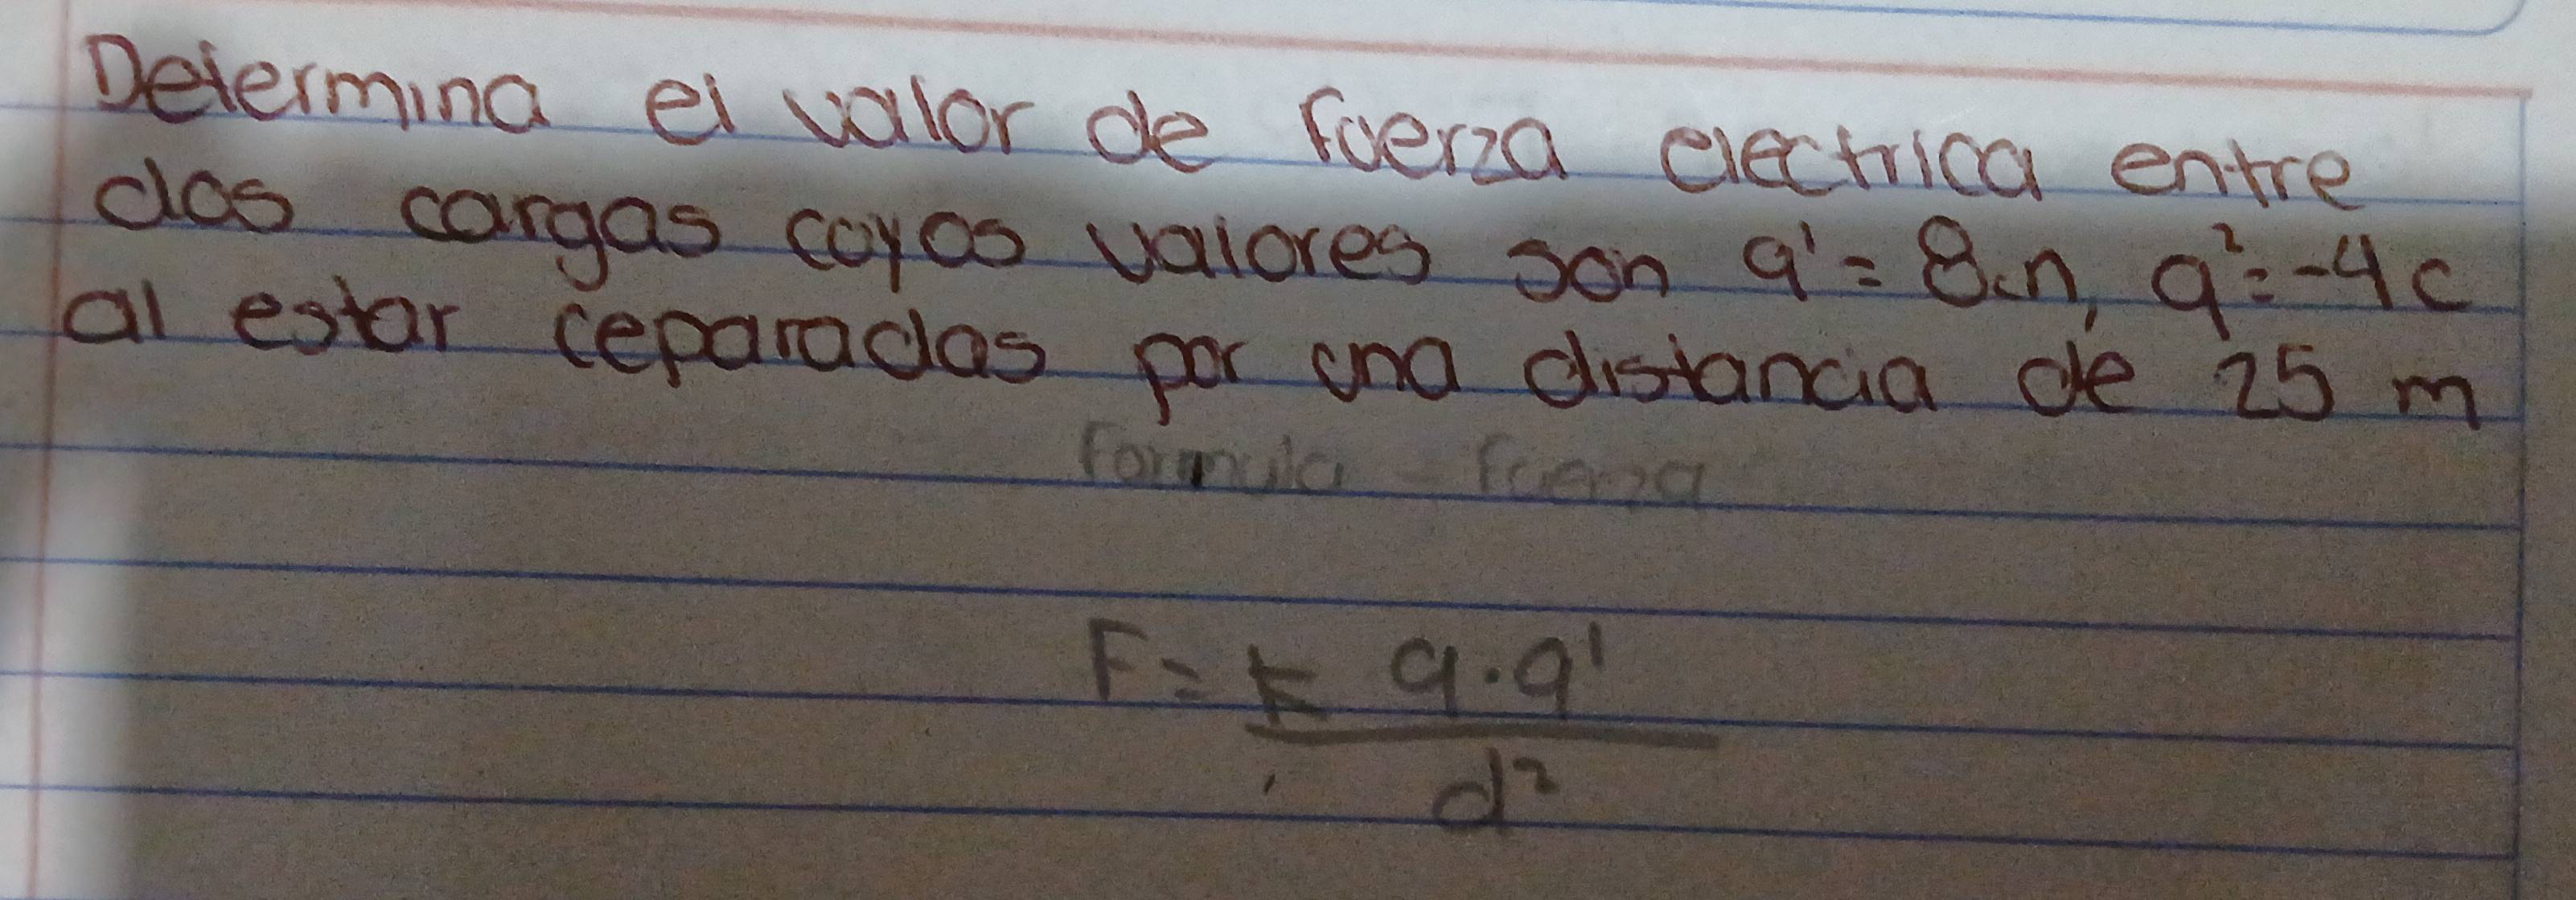 Determina el valor de fuerza electrica entre
dos cargas cuyos valores son q¹= 8.n, q²=-4c
al estar ceparadas por una distancia de 25 m
formula - fuerza
F= K q.q¹
d²